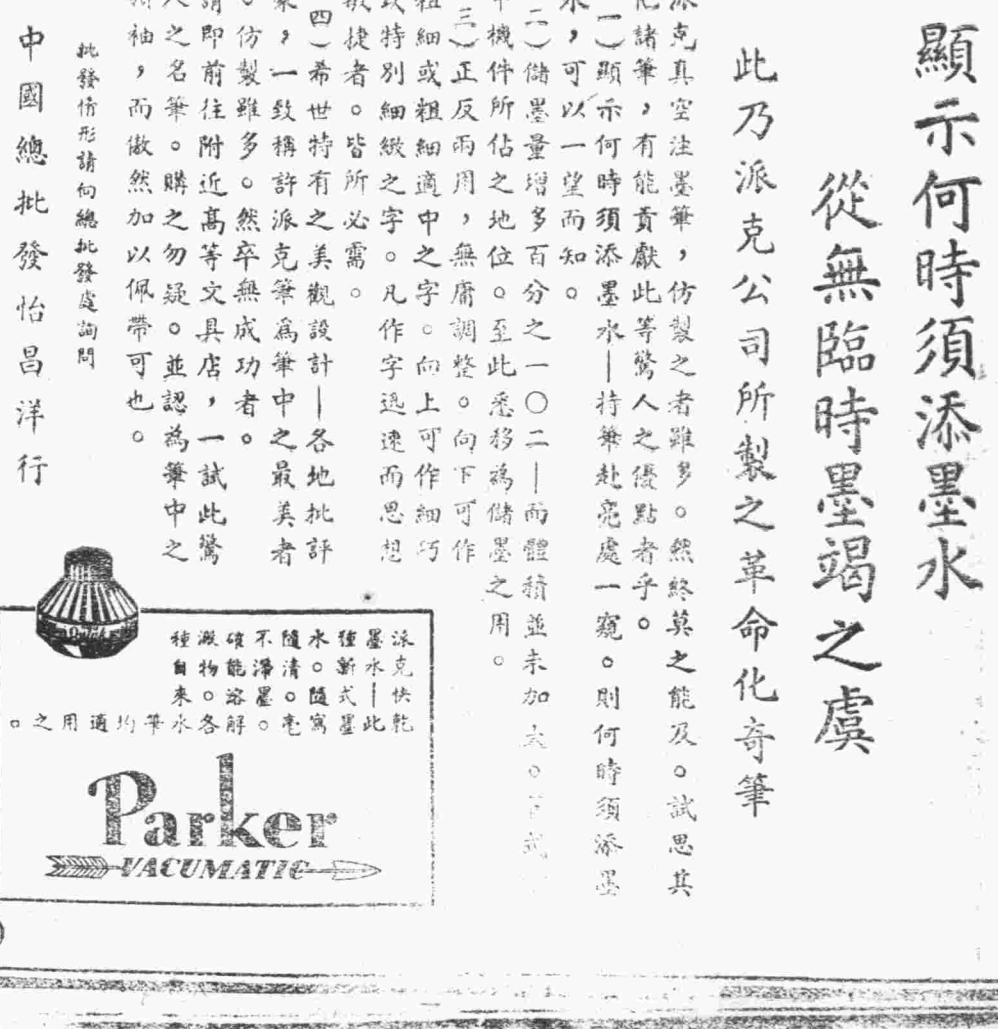 顯示何時須添墨水
從無臨時墨竭之虞
此乃派克公司所製之革命化奇筆
派克真空注墨筆,仿製之者雖多。然終莫之能及。試思其
化諸筆,有能貢獻此等驚人之優點者乎。
一)顯示何時須添墨水—持筆赴亮處一窺。則何時須添墨
水,可以一望而知。
二)儲墨量增多百分之一〇二—而體積並未加大。式
中機件所佔之地位。至此悉移為儲墨之用。
三)正反兩用,無庸調整。向下可作
粗細或粗細適中之字。向上可作細巧
或特別細緻之字。凡作字迅速而思想
敏捷者。皆所必需。
四)希世特有之美觀設計—各地批評
家,一致稱許派克筆為筆中之最美者
。仿製雖多。然卒無成功者。
請即前往附近高等文具店,一試此驚
人之名筆。購之勿疑。並認為筆中之
袖,而傲然加以佩帶可也。
批發情形請向總批發處詢問
中國總批發怡昌洋行
Quink
派克快乾
墨水—此
種新式墨
水。隨寫
隨清。毫
不滯墨。
確能溶解
澱物。各
種自來水筆均適用之。
Parker
VACUMATIC